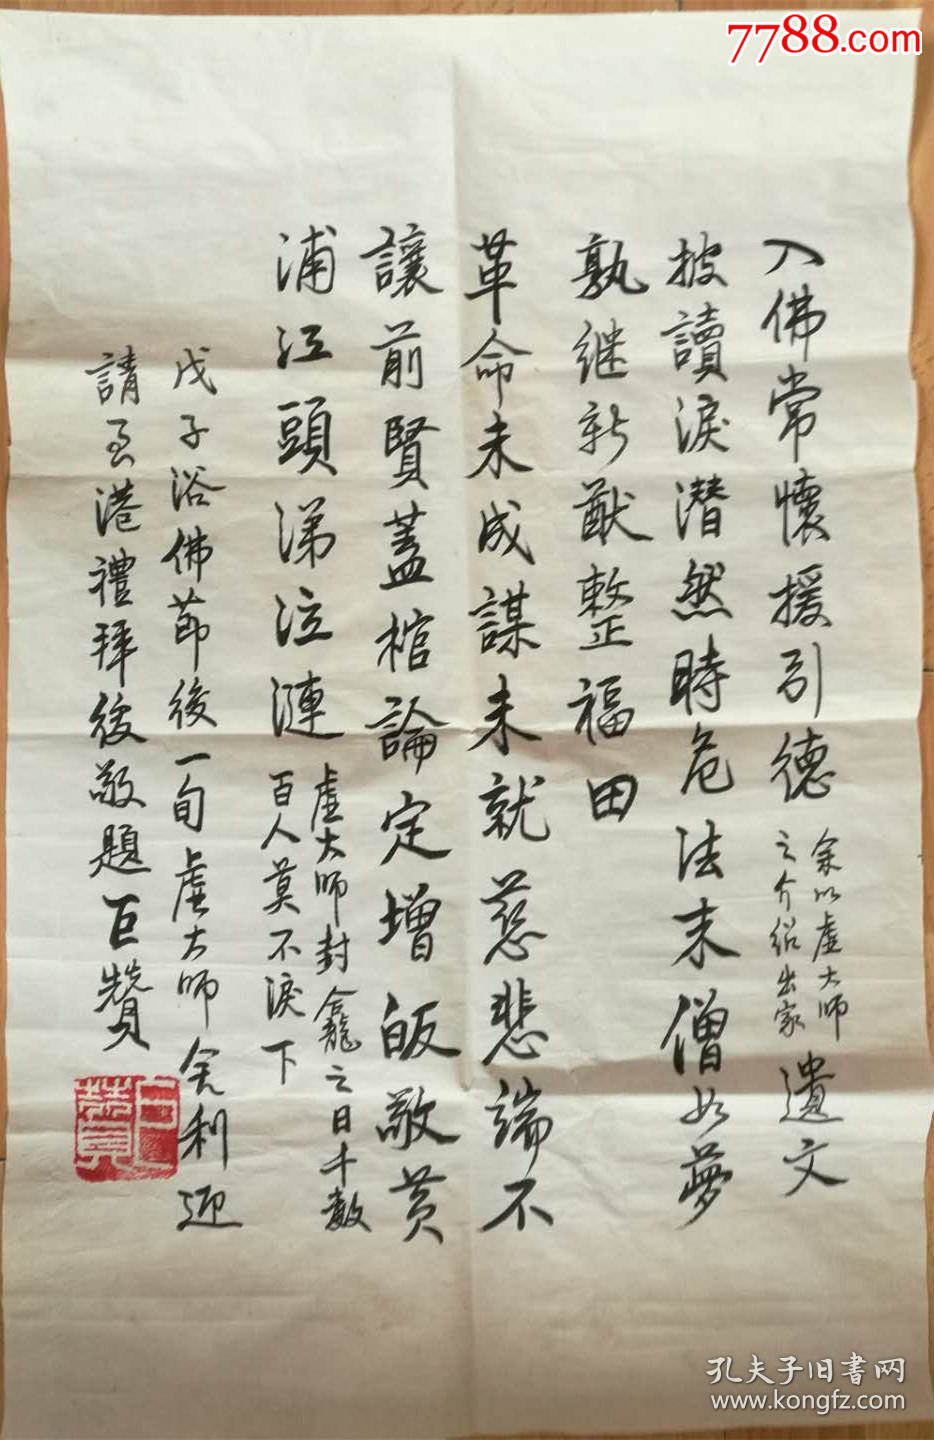 7788.com
入佛常懷援引德 余以虛大師之介紹出家 遺文
披讀淚潸然時危法末僧如夢
孰继新猷整福田
革命未成謀未就慈悲端不
讓前賢蓋棺論定增皈敬黃
浦江頭涕泣漣 虛大師封龕之日千數百人莫不淚下
戊子浴佛節後一旬虛大師舍利迎
請至港禮拜後敬題巨贊
巨贊
孔夫子旧书网
www.kongfz.com